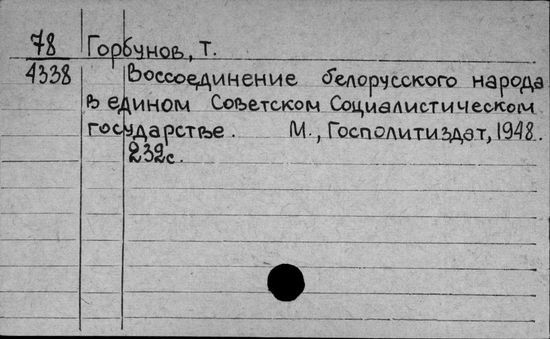 78 Горбунов, Т.
4338 Воссоединение белорусского народа
в едином Советском Социалистическом
государстве. М., Госполитиздат, 1948.
232с.